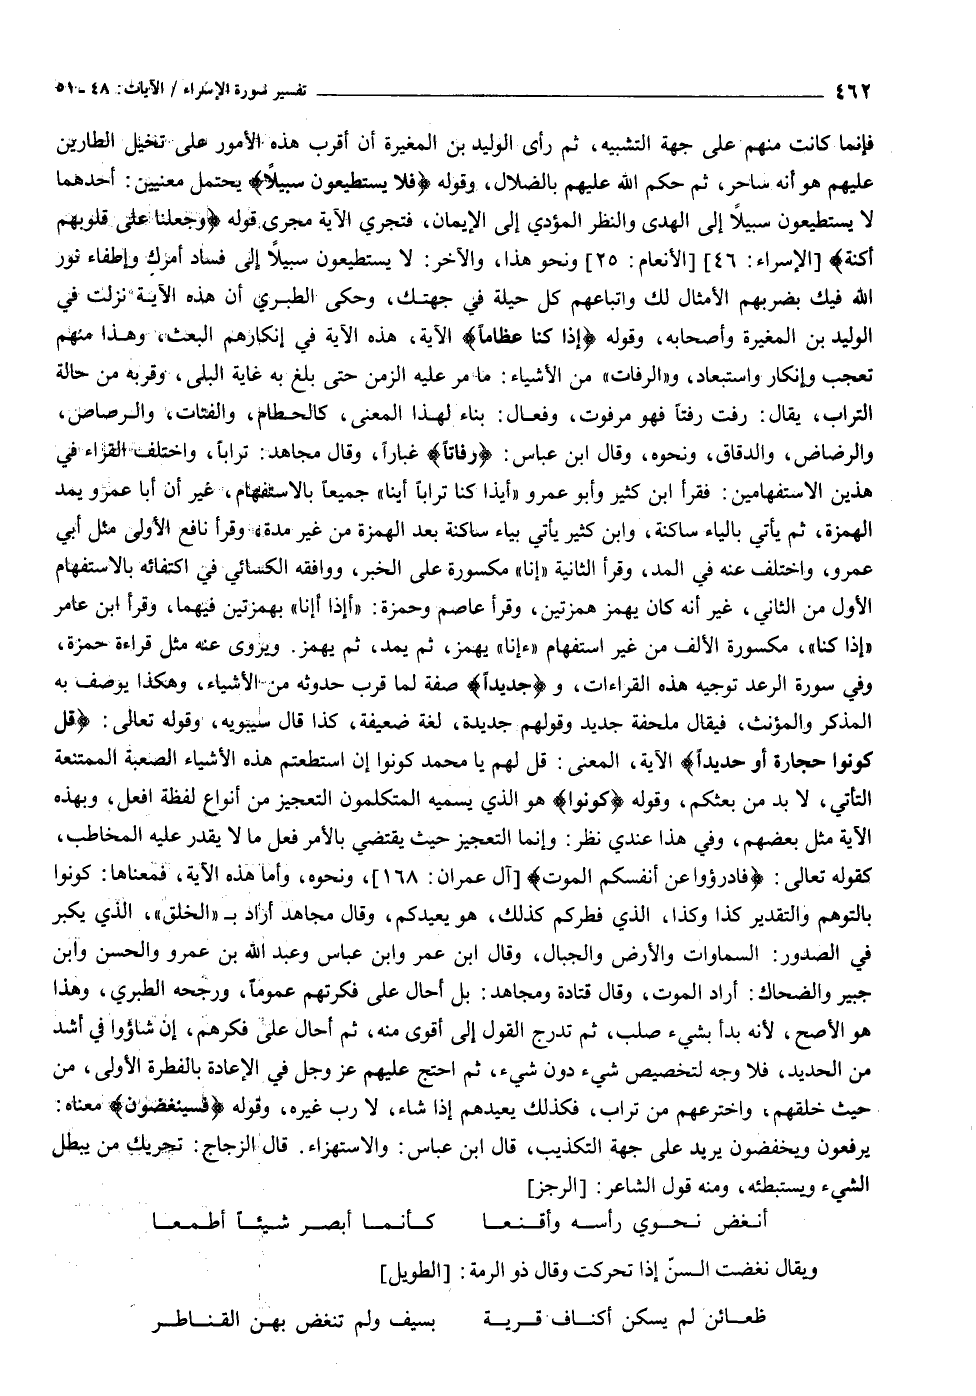 ٤٦٢ ــــــــــــــــــــــــــــــ تفسير سورة الإسراء / الآيات: ٤٨ - ٥١
فإنما كانت منهم على جهة التشبيه، ثم رأى الوليد بن المغيرة أن أقرب هذه الأمور على تخيل الطارين
عليهم هو أنه ساحر، ثم حكم الله عليهم بالضلال، وقوله ﴿فلا يستطيعون سبيلاً﴾ يحتمل معنيين: أحدهما
لا يستطيعون سبيلاً إلى الهدى والنظر المؤدي إلى الإيمان، فتجري الآية مجرى قوله ﴿وجعلنا على قلوبهم
أكنة﴾ [الإسراء: ٤٦] [الأنعام: ٢٥] ونحو هذا، والآخر: لا يستطيعون سبيلاً إلى فساد أمرك وإطفاء نور
الله فيك بضربهم الأمثال لك واتباعهم كل حيلة في جهتك، وحكى الطبري أن هذه الآية نزلت في
الوليد بن المغيرة وأصحابه، وقوله ﴿إذا كنا عظاماً﴾ الآية، هذه الآية في إنكارهم البعث، وهذا منهم
تعجب وإنكار واستبعاد، و«الرفات» من الأشياء: ما مر عليه الزمن حتى بلغ به غاية البلى، وقربه من حالة
التراب، يقال: رفت رفتاً فهو مرفوت، وفعال: بناء لهذا المعنى، كالحطام، والفتات، والرصاص،
والرضاض، والدقاق، ونحوه، وقال ابن عباس: ﴿رفاتاً﴾ غباراً، وقال مجاهد: تراباً، واختلف القراء في
هذين الاستفهامين: فقرأ ابن كثير وأبو عمرو «أيذا كنا تراباً أينا» جميعاً بالاستفهام، غير أن أبا عمرو يمد
الهمزة، ثم يأتي بالياء ساكنة، وابن كثير يأتي بياء ساكنة بعد الهمزة من غير مدة، وقرأ نافع الأولى مثل أبي
عمرو، واختلف عنه في المد، وقرأ الثانية «إنا» مكسورة على الخبر، ووافقه الكسائي في اكتفائه بالاستفهام
الأول من الثاني، غير أنه كان يهمز همزتين، وقرأ عاصم وحمزة: «أإذا أإنا» بهمزتين فيهما، وقرأ ابن عامر
«إذا كنا»، مكسورة الألف من غير استفهام «ءإنا» يهمز، ثم يمد، ثم يهمز. ويروى عنه مثل قراءة حمزة،
وفي سورة الرعد توجيه هذه القراءات، و ﴿جديداً﴾ صفة لما قرب حدوثه من الأشياء، وهكذا يوصف به
المذكر والمؤنث، فيقال ملحفة جديد وقولهم جديدة، لغة ضعيفة، كذا قال سيبويه، وقوله تعالى: ﴿قل
كونوا حجارة أو حديداً﴾ الآية، المعنى: قل لهم يا محمد كونوا إن استطعتم هذه الأشياء الصعبة الممتنعة
التأتي، لا بد من بعثكم، وقوله ﴿كونوا﴾ هو الذي يسميه المتكلمون التعجيز من أنواع لفظة افعل، وبهذه
الآية مثل بعضهم، وفي هذا عندي نظر: وإنما التعجيز حيث يقتضي بالأمر فعل ما لا يقدر عليه المخاطب،
كقوله تعالى: ﴿فادرؤوا عن أنفسكم الموت﴾ [آل عمران: ١٦٨]، ونحوه، وأما هذه الآية، فمعناها: كونوا
بالتوهم والتقدير كذا وكذا، الذي فطركم كذلك، هو يعيدكم، وقال مجاهد أراد بـ «الخلق»، الذي يكبر
في الصدور: السماوات والأرض والجبال، وقال ابن عمر وابن عباس وعبد الله بن عمرو والحسن وابن
جبير والضحاك: أراد الموت، وقال قتادة ومجاهد: بل أحال على فكرتهم عموماً، ورجحه الطبري، وهذا
هو الأصح، لأنه بدأ بشيء صلب، ثم تدرج القول إلى أقوى منه، ثم أحال على فكرهم، إن شاؤوا في أشد
من الحديد، فلا وجه لتخصيص شيء دون شيء، ثم احتج عليهم عز وجل في الإعادة بالفطرة الأولى، من
حيث خلقهم، واخترعهم من تراب، فكذلك يعيدهم إذا شاء، لا رب غيره، وقوله ﴿فسينغضون﴾ معناه:
يرفعون ويخفضون يريد على جهة التكذيب، قال ابن عباس: والاستهزاء. قال الزجاج: تحريك من يبطل
الشيء ويستبطئه، ومنه قول الشاعر: [الرجز]
أنغض نحوي رأسه وأقنعا كأنما أبصر شيئاً أطمعا
ويقال نغضت السنّ إذا تحركت وقال ذو الرمة: [الطويل]
ظعائن لم يسكن أكناف قرية بسيف ولم تنغض بهن القناطر